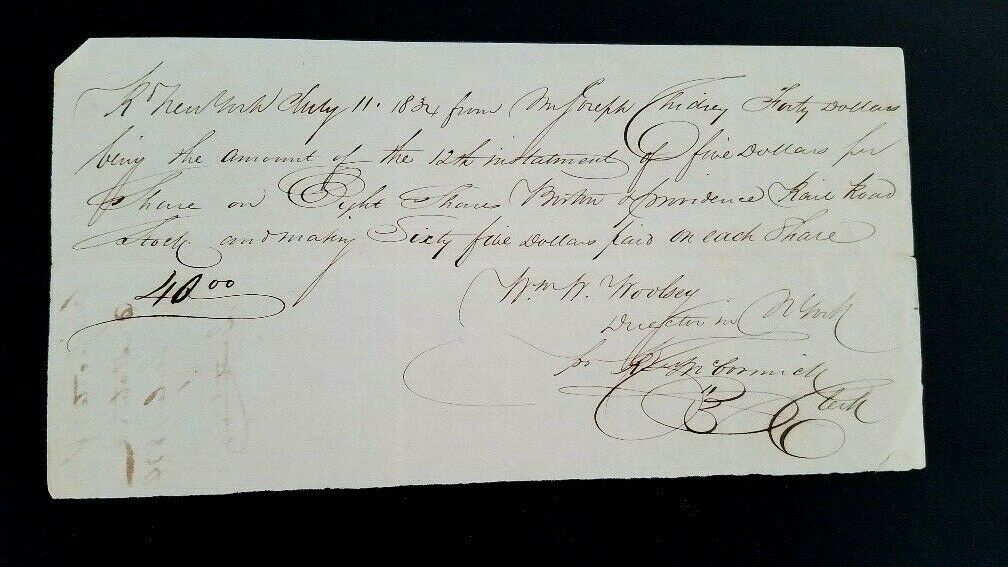 Rd New York July 11. 1834 from Mr Joseph Chidsey Forty Dollars
being the amount of the 12th instalment of five Dollars per
Share on Eight Shares Boston & Providence Rail Road
Stock and making Sixty five Dollars paid on each Share
40.00
Wm W. Woolsey
Director in N York
for McCormick
Clerk